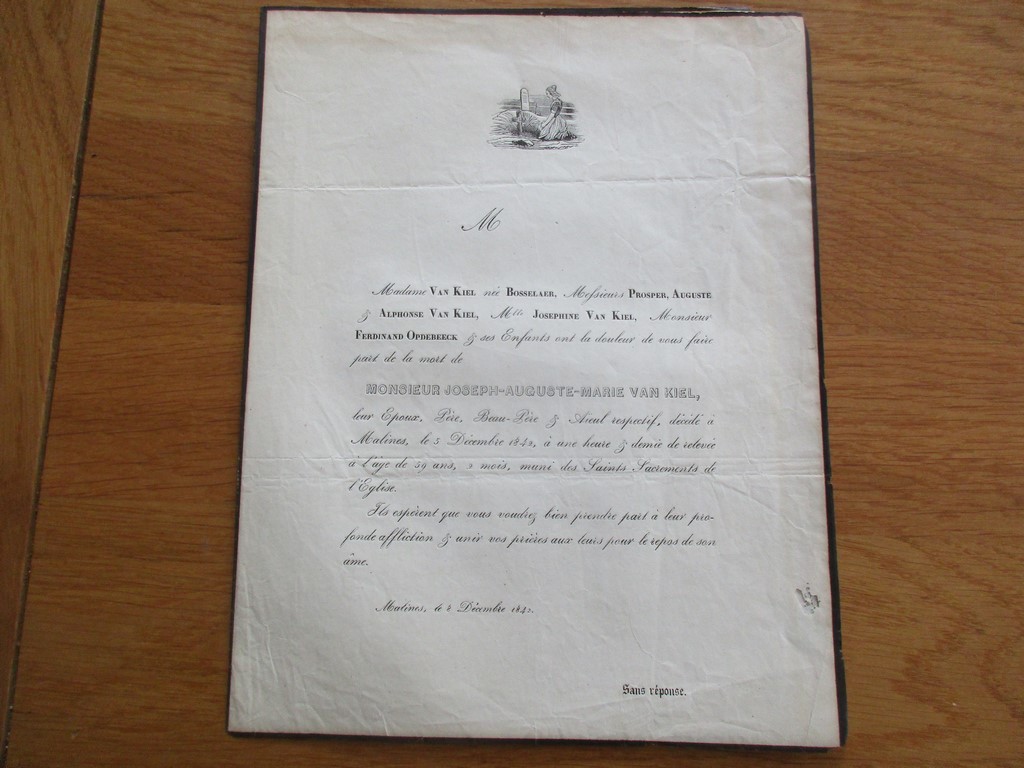 M
Madame VAN KIEL née BOSSELAER, Messieurs PROSPER, AUGUSTE
& ALPHONSE VAN KIEL, Mlle JOSEPHINE VAN KIEL, Monsieur
FERDINAND OPDEBEECK & ses Enfants ont la douleur de vous faire
part de la mort de
MONSIEUR JOSEPH-AUGUSTE-MARIE VAN KIEL,
leur Epoux, Père, Beau-Père & Aieul respectif, décédé à
Malines, le 5 Décembre 1842, à une heure & demie de relevée
à l'âge de 59 ans, 2 mois, muni des Saints Sacrements de
l'Eglise.
Ils espèrent que vous voudrez bien prendre part à leur pro-
fonde affliction & unir vos prières aux leurs pour le repos de son
âme.
Malines, le Décembre 1842.
Sans réponse.